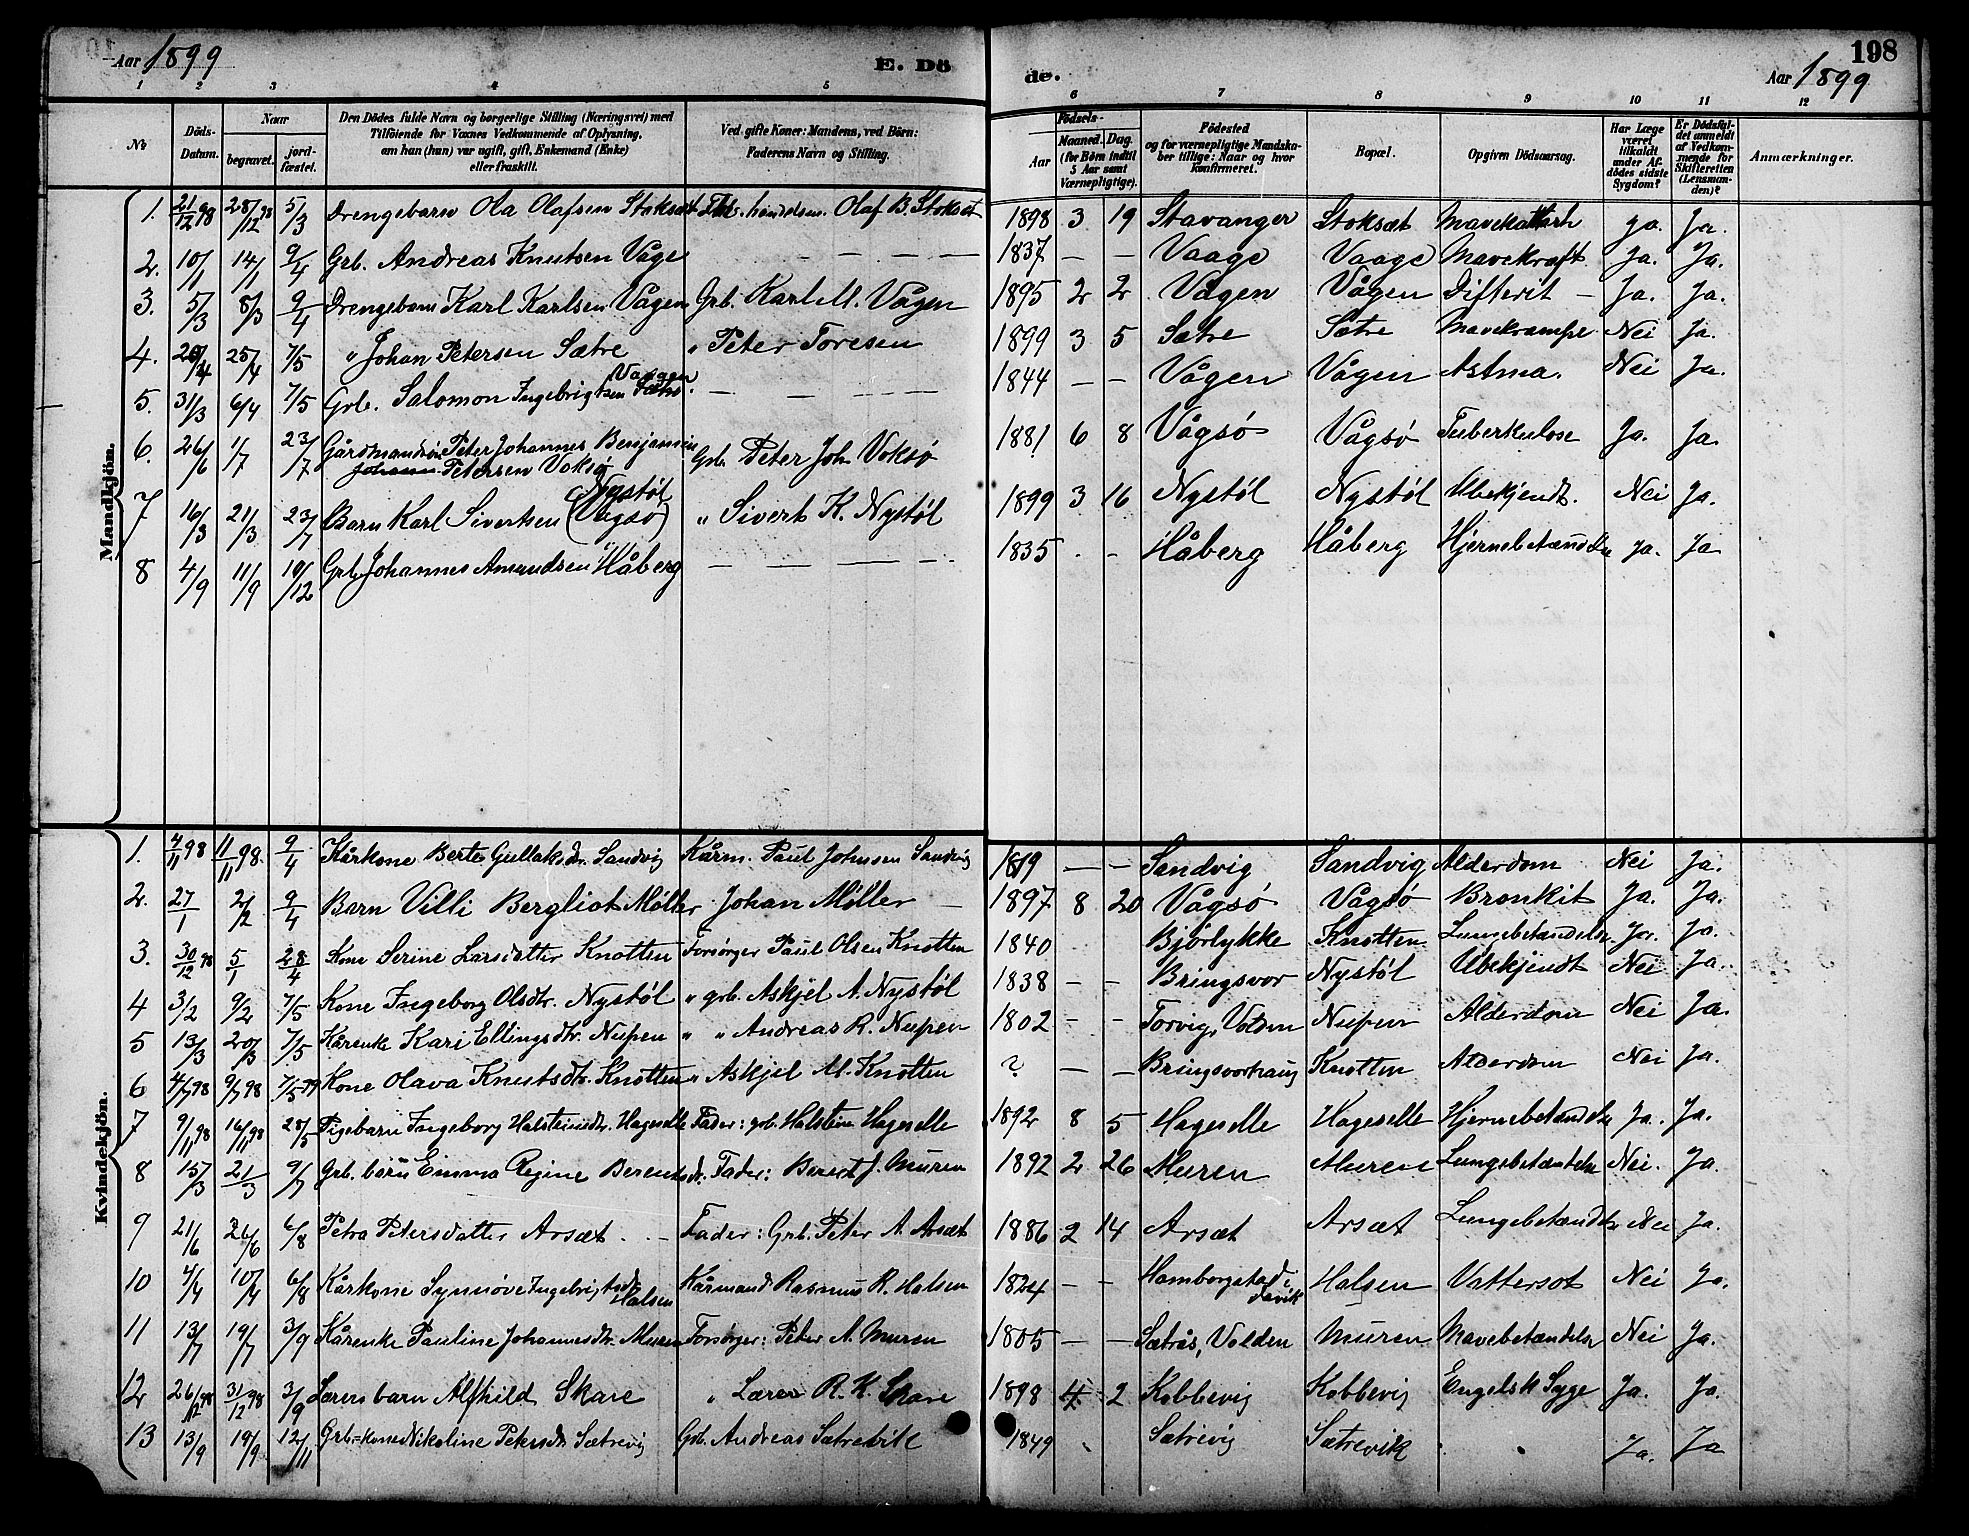 Aar 1899 E. Dö
de. 198
Aar 1899
1 2 3 4 5 6 7 8 9 10 11 12
No
Döds-Datum.
Naar
begravet.
jord-fæstet.
Den Dödes fulde Navn og borgerlige Stilling (Næringsvei) med
Tilföiende for Voxnes Vedkommende af Oplysning,
om han (hun) var ugift, gift, Enkemand (Enke)
eller fraskilt.
Ved gifte Koner: Mandens, ved Börn:
Faderens Navn og Stilling.
Födsels-
Aar
Maaned. Dag.
(for Börn indtil
5 Aar samt
Værnepligtige).
Födested
og for værnepligtige Mandska-
ber tillige: Naar og hvor
konfirmeret.
Bopæl.
Opgiven Dödsaarsag.
Har Læge
været
tilkaldt
under Af-
dödes sidste
Sygdom?
Er Dödsfal-
det anmeldt
af Vedkom-
mende for
Skifteretten
(Lensman-
den)?
Anmærkninger.
Mandkjön.
1. 21/12 98 28/12 98 5/3 Drengebarn Ola Olafsen Stoksæt handelsm. Olaf B. Stoksæt 1898 3 19 Stavanger Stoksæt Mavekatarh ja. Ja.
2. 10/1 14/1 9/4 Grb. Andreas Knutsen Våge — — — — 1837 — — Vaage Vaage Mavekræft Ja. Ja.
3. 5/3 8/3 9/4 Drengebarn Karl Karlsen Vågen Grb. Karl M. Vågen 1895 2 2 Vågen Vågen Difterit — Ja. Ja.
4. 20/4 25/4 7/5 " Johan Petersen Sætre " Peter Toresen 1899 3 5 Sætre Sætre Mavekrampe Nei Ja.
5. 31/3 6/4 7/5 Grb. Salomon Ingebrigtsen Vaagen — — — 1844 — — Vågen Vågen Astma. Nei Ja.
6. 26/6 1/7 23/7 Gårdmandsön Peter Johannes Benjamin
Petersen Voksø Grb. Peter Joh. Voksø 1881 6 8 Vågsø Vågsø Tuberkulose Ja. Ja.
7 16/3 21/3 23/7 Barn Karl Sivertsen Nystøl (Vågsø) " Sivert K. Nystøl 1899 3 16 Nystøl Nystøl Ubekjendt. Nei Ja.
8 4/9 11/9 10/12 Grb. Johannes Amundsen Håberg — — — — 1835 - - Håberg Håberg Hjernebetændelse Ja. Ja
Kvindekjön.
1. 4/11 98 11/11 98. 9/4 Kårkone Berte Gullaksdr. Sandvig Kårm. Paul Johnsen Sandvig 1819 — — Sandvig Sandvig Alderdom Nei Ja.
2. 27/1 2/2 9/4 Barn Villi Bergliot Møller Johan Møller — 1897 8 20 Vågsø Vågsø Bronkit Ja. Ja.
3. 30/12 98 5/1 28/4 Kone Serine Larsdatter Knotten Forsørger Paul Olsen Knotten 1840 Bjørlykke Knotten Lungebetændelse Ja. Ja.
4 3/2 9/2 7/5 Kone Ingeborg Olsdtr. Nystøl " grb. Askjel A. Nystøl 1838 — — Bringsvor Nystøl Ubekjendt Nei Ja.
5 13/3 20/3 7/5 Kårenke Kari Ellingsdtr. Nupen " " Andreas R. Nupen 1802 — — Torvig, Volden Nupen Alderdom Nei Ja.
6 4/7 98 9/7 98 7/5 99 Kone Olava Knutsdtr. Knotten " Askjel M. Knotten ? — — Bringsvorhaug Knotten Alderdom Nei Ja.
7 9/11 98 16/11 98 28/5 Pigebarn Ingeborg Halsteinsdtr. Hageselle Fader: grb. Halstein Hageselle 1892 8 5 Hageselle Hageselle Hjernebetændelse Ja. Ja.
8 15/3 21/3 9/7 Grb. barn Emma Regine Berentsdr. Fader: Berent J. Muren 1892 2 26 Muren Muren Lungebetændelse Nei. Ja.
9 21/6 26/6 6/8 Petra Petersdatter Arsæt. - — Fader: Grb. Peter A. Arsæt 1886 2 14 Arsæt Arsæt Lungebetændelse Nei Ja.
10 4/4 10/4 6/8 Kårkone Synnøve Ingebrigtsdr. Halsen Kårmand Rasmus R. Halsen 1824 — — Homborgstad i Davik Halsen Vattersot Nei Ja.
11 13/7 19/7 3/9 Kårenke Pauline Johannesdtr. Muren Forsørger: Peter A. Muren 1805 — — Sætrås, Volden Muren Mavebetændelse Nei Ja.
12 26/12 98 31/12 98 3/9 Lærers barn Alfhild Skare " Lærer R. K. Skare 1898 4 2 Kobbevig Kobbevig Engelsk Syge Ja. Ja.
13 13/9 19/9 12/11 Grb.-kone Nikoline Petersdtr. Sætrevig Grb. Andreas Sætrevik 1849 Sætrevig Sætrevik Ja. Ja